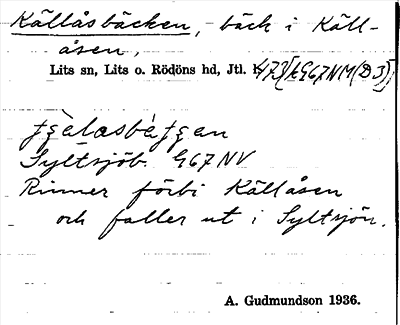 Källåsbäcken, bäck i Käll-
åsen,
Lits sn, Lits o. Rödöns hd, Jtl. l.
Syltsjöb. G67NV
Rinner förbi Källåsen
och faller ut i Syltsjön.
A. Gudmundson 1936.